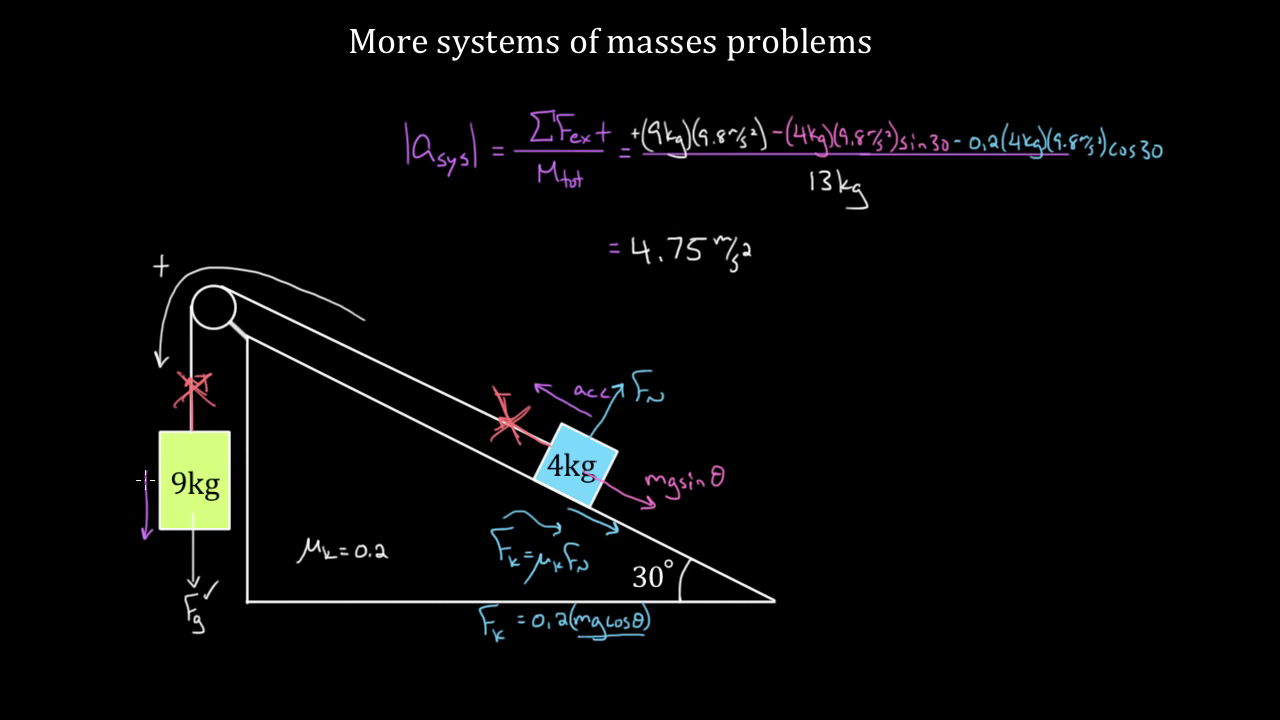 More systems of masses problems
|a_sys| = ΣF_ext / M_tot = +(9kg)(9.8m/s²) -(4kg)(9.8m/s²)sin30 - 0.2(4kg)(9.8m/s²)cos30 / 13kg
= 4.75 m/s²
+
acc
F_N
4kg
mgsinθ
9kg
μ_k = 0.2
F_k = μ_k F_N
30°
F_g ✓
F_k = 0.2(mgcosθ)